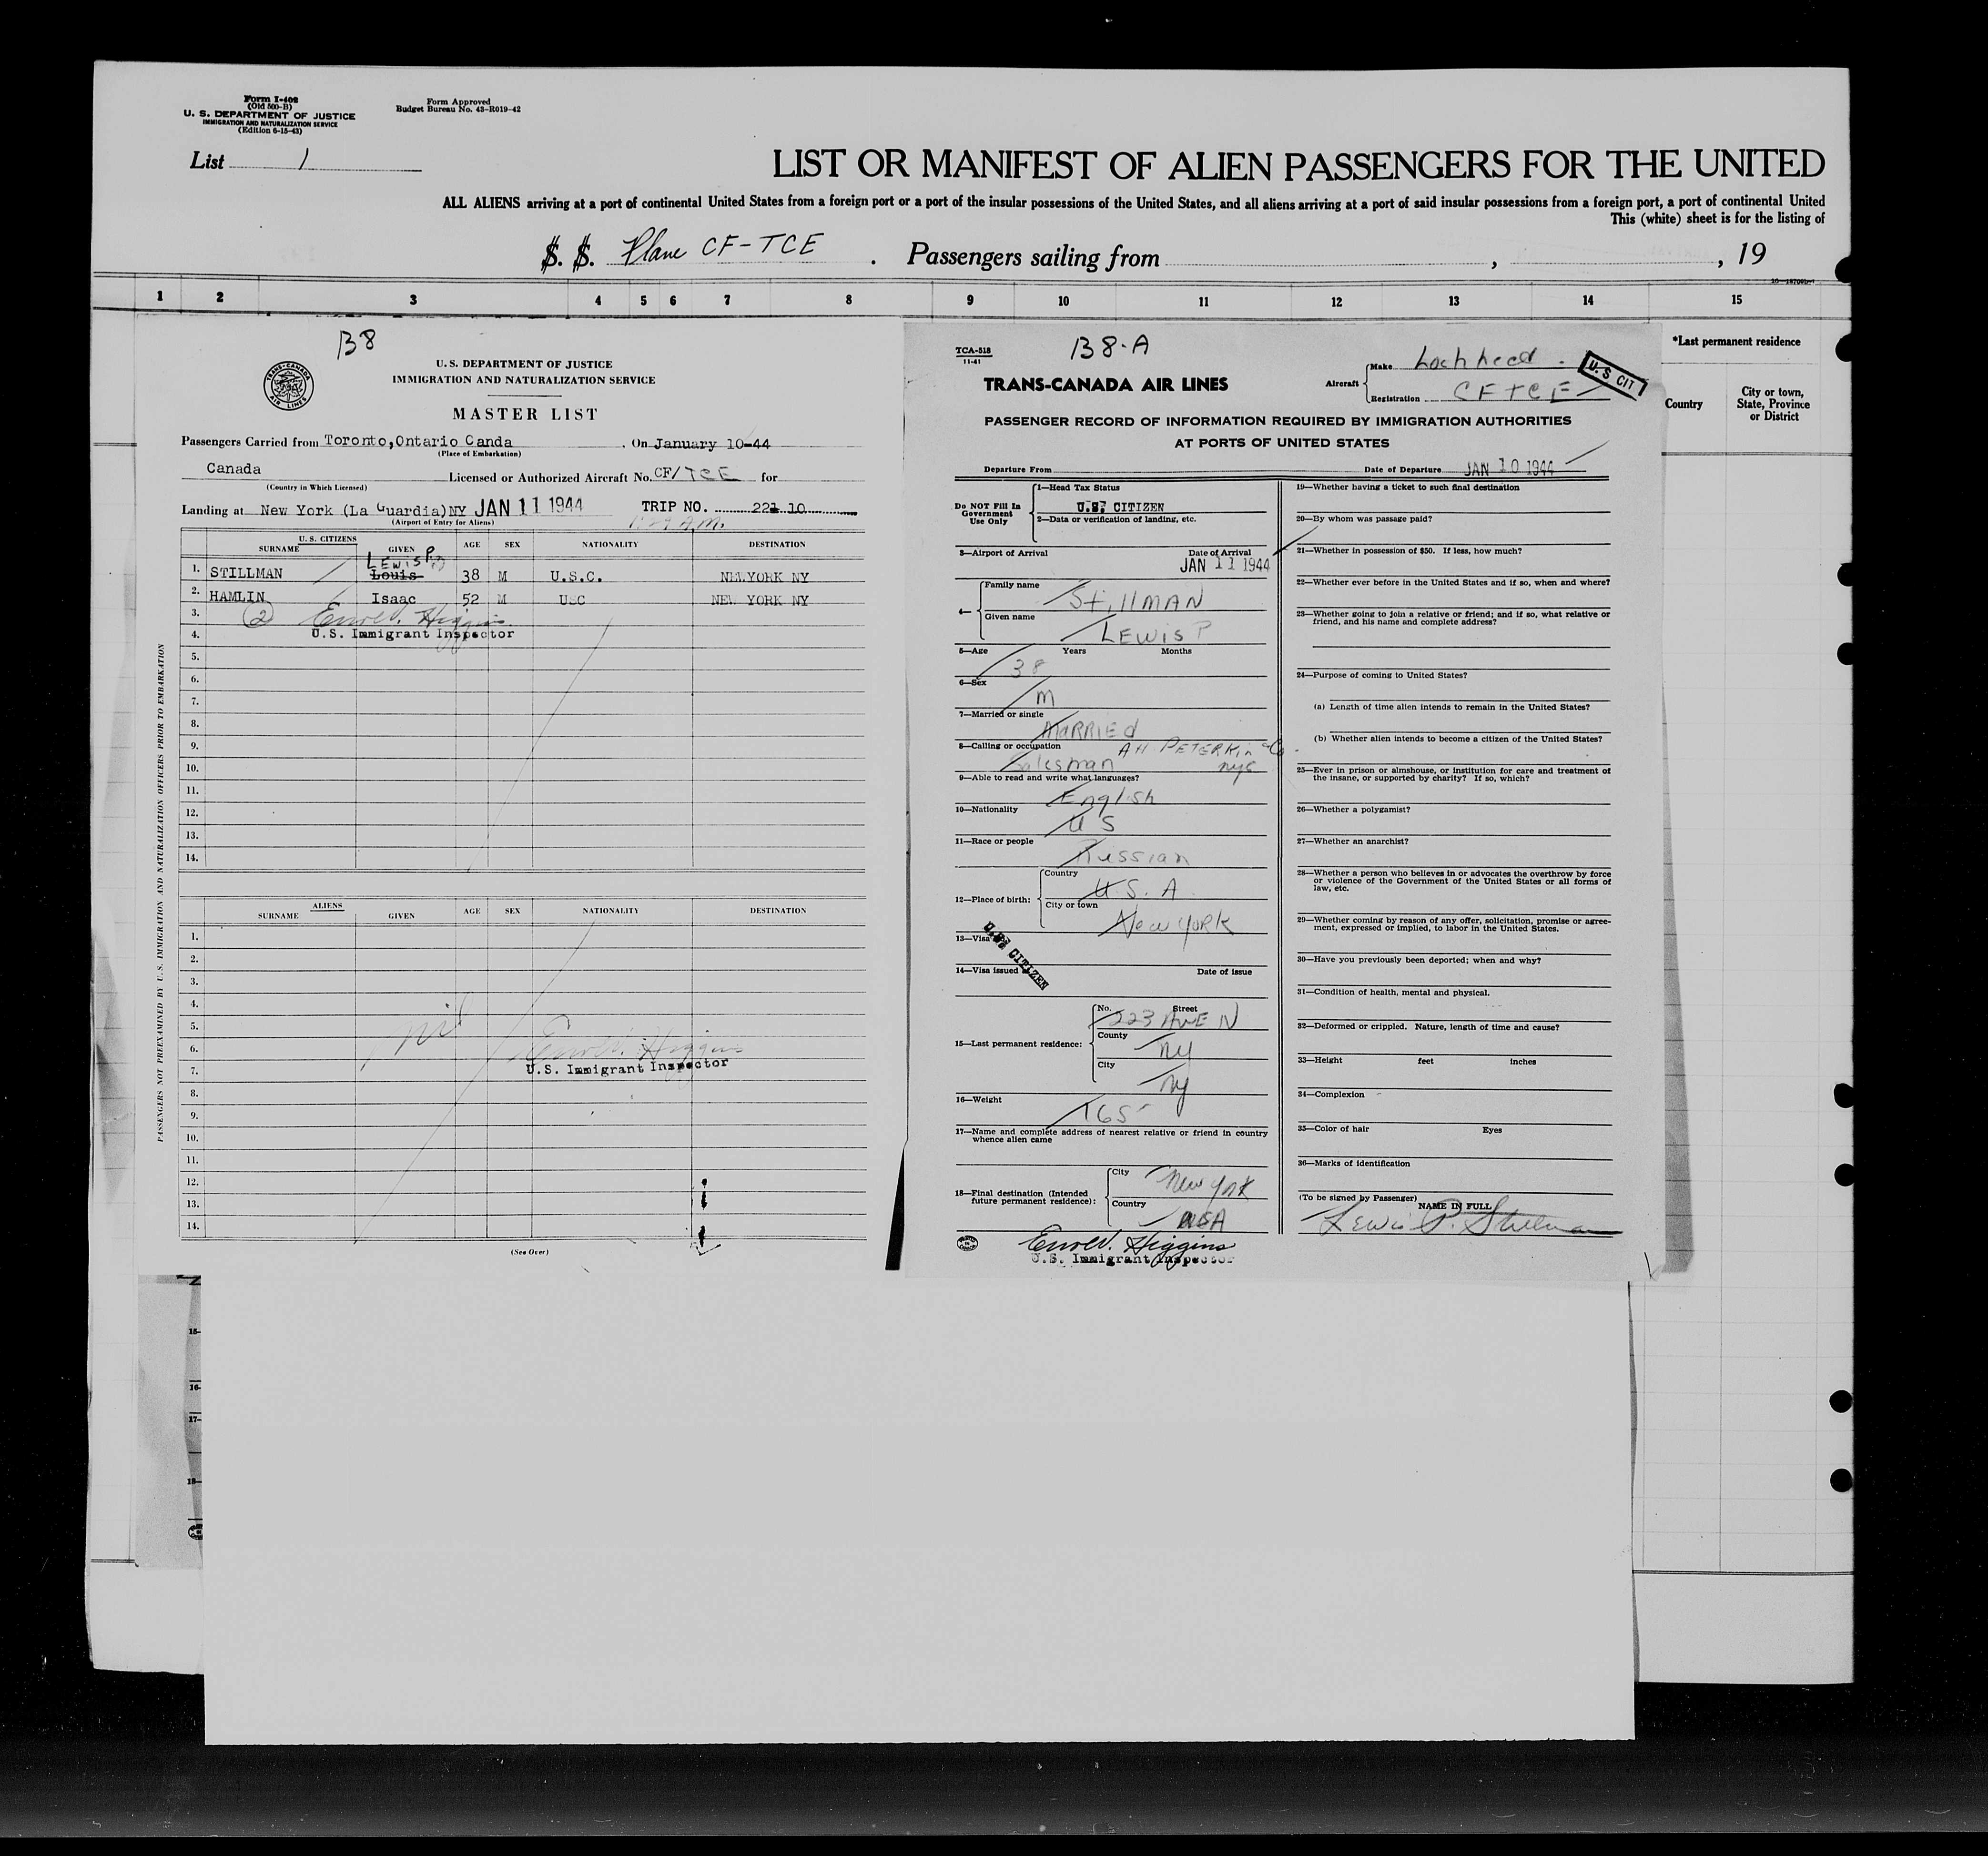 Form I-408
(Old 500-B)
U. S. DEPARTMENT OF JUSTICE
IMMIGRATION AND NATURALIZATION SERVICE
(Edition 6-15-43)
Form Approved
Budget Bureau No. 43-R019-42
List 1
LIST OR MANIFEST OF ALIEN PASSENGERS FOR THE UNITED
ALL ALIENS arriving at a port of continental United States from a foreign port or a port of the insular possessions of the United States, and all aliens arriving at a port of said insular possessions from a foreign port, a port of continental United
This (white) sheet is for the listing of
S. S. Plane CF-TCE . Passengers sailing from , , 19
1 2 3 4 5 6 7 8 9 10 11 12 13 14 15
*Last permanent residence
Country
City or town,
State, Province
or District
B8
TRANS-CANADA AIR LINES
U. S. DEPARTMENT OF JUSTICE
IMMIGRATION AND NATURALIZATION SERVICE
MASTER LIST
Passengers Carried from Toronto,Ontario Canda . On January 10-44
(Place of Embarkation)
Canada Licensed or Authorized Aircraft No. CF/TCE for
(Country in Which Licensed)
Landing at New York (La Guardia)NY JAN 11 1944 TRIP NO. 221 10
(Airport of Entry for Aliens)
A.M.
U. S. CITIZENS
SURNAME GIVEN AGE SEX NATIONALITY DESTINATION
LEWIS P.
1. STILLMAN Louis 38 M U.S.C. NEW YORK NY
2. HAMLIN Isaac 52 M USC NEW YORK NY
3. (2) Higgins
4. U.S. Immigrant Inspector
5.
6.
7.
8.
9.
10.
11.
12.
13.
14.
ALIENS
SURNAME GIVEN AGE SEX NATIONALITY DESTINATION
1.
2.
3.
4.
5. nil
6. Higgins
7. U.S. Immigrant Inspector
8.
9.
10.
11.
12.
13.
14.
(See Over)
PASSENGERS NOT PREEXAMINED BY U. S. IMMIGRATION AND NATURALIZATION OFFICERS PRIOR TO EMBARKATION
TCA-518
11-41
B8-A
TRANS-CANADA AIR LINES
Aircraft
Make Lochheed
Registration CFTCE
U. S CIT
PASSENGER RECORD OF INFORMATION REQUIRED BY IMMIGRATION AUTHORITIES
AT PORTS OF UNITED STATES
Departure From Date of Departure JAN 10 1944
Do NOT Fill In
Government
Use Only
1—Head Tax Status
U.S. CITIZEN
2—Data or verification of landing, etc.
3—Airport of Arrival Date of Arrival
JAN 11 1944
4—
Family name
StillMAN
Given name
LEWIS P
5—Age Years Months
38
6—Sex
M
7—Married or single
MARRIEd
8—Calling or occupation AH PETERKin Co.
Salesman nyc
9—Able to read and write what languages?
English
10—Nationality
U S
11—Race or people
Russian
12—Place of birth:
Country
U.S.A.
City or town
New York
13—Visa
U.S. CITIZEN
14—Visa issued Date of issue
15—Last permanent residence:
No. Street
223 AvE N
County
ny
City
ny
16—Weight
165
17—Name and complete address of nearest relative or friend in country
whence alien came
18—Final destination (Intended
future permanent residence):
City New York
Country USA
Higgins
U.S. Immigrant Inspector
19—Whether having a ticket to such final destination
20—By whom was passage paid?
21—Whether in possession of $50. If less, how much?
22—Whether ever before in the United States and if so, when and where?
23—Whether going to join a relative or friend; and if so, what relative or
friend, and his name and complete address?
24—Purpose of coming to United States?
(a) Length of time alien intends to remain in the United States?
(b) Whether alien intends to become a citizen of the United States?
25—Ever in prison or almshouse, or institution for care and treatment of
the insane, or supported by charity? If so, which?
26—Whether a polygamist?
27—Whether an anarchist?
28—Whether a person who believes in or advocates the overthrow by force
or violence of the Government of the United States or all forms of
law, etc.
29—Whether coming by reason of any offer, solicitation, promise or agree-
ment, expressed or implied, to labor in the United States.
30—Have you previously been deported; when and why?
31—Condition of health, mental and physical.
32—Deformed or crippled. Nature, length of time and cause?
33—Height feet inches
34—Complexion
35—Color of hair Eyes
36—Marks of identification
(To be signed by Passenger)
NAME IN FULL
Lewis P. Stillman
15—
16—
17—
18—